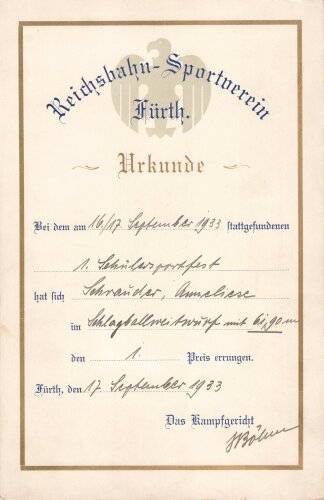 Reichsbahn-Sportverein
Fürth.
Urkunde
Bei dem am 16/17. September 1933 stattgefundenen
1. Schülersportfest
hat sich Schrauder, Anneliese
im Schlagballweitwurf mit 61,90 m
den 1. Preis errungen.
Fürth, den 17. September 1933
Das Kampfgericht
Böhm